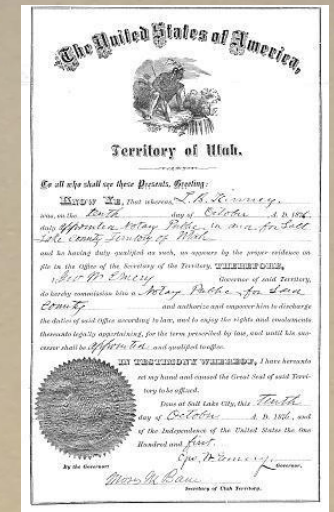 The United States of America,
Territory of Utah.
To all who shall see these Presents, Greeting:
KNOW YE, That whereas, L. B. Kinney
was, on the tenth day of October A. D. 1876,
duly appointed Notary Public in and for Salt
Lake County Territory of Utah
and he having duly qualified as such, as appears by the proper evidence on
file in the Office of the Secretary of the Territory, THEREFORE,
I, Geo W. Emery Governor of said Territory,
do hereby commission him a Notary Public for said
County and authorize and empower him to discharge
the duties of said Office according to law, and to enjoy the rights and emoluments
thereunto legally appertaining, for the term prescribed by law, and until his suc-
cessor shall be appointed and qualified to office.
IN TESTIMONY WHEREOF, I have hereunto
set my hand and caused the Great Seal of said Terri-
tory to be affixed.
Done at Salt Lake City, this tenth
day of October A. D. 1876, and
of the Independence of the United States the One
Hundred and first.
Geo. W. Emery, Governor.
By the Governor:
Secretary of Utah Territory.